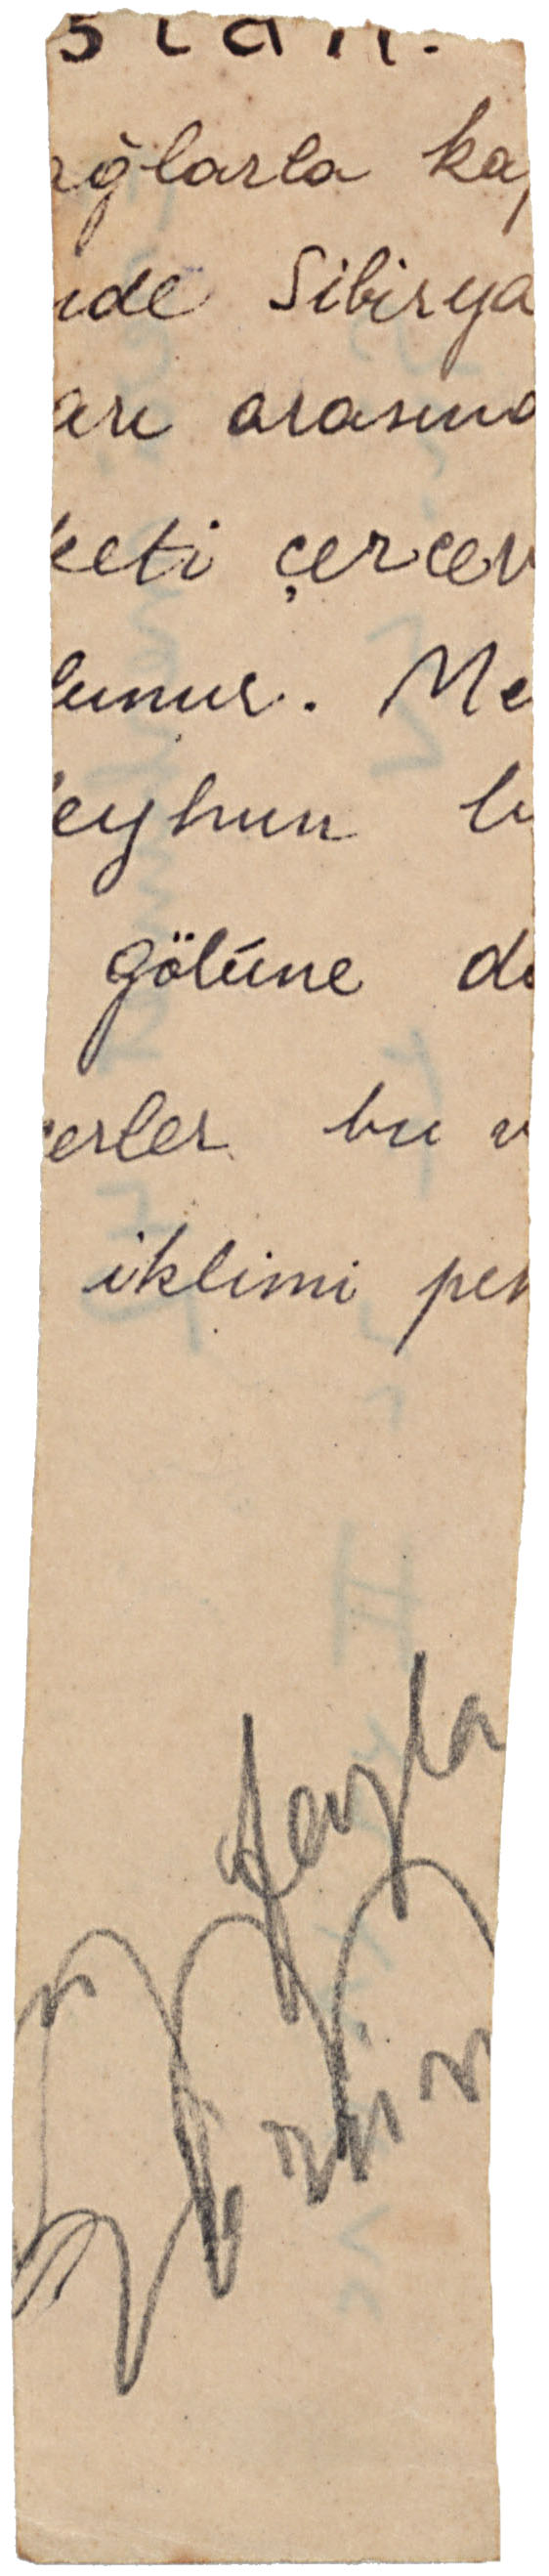 stan.
ağlarla kap
nde Sibirya
arı arasınd
keti çerçev
lunur. Me
eyhun b
gölüne dö
erler bu v
iklimi pek
Leyla